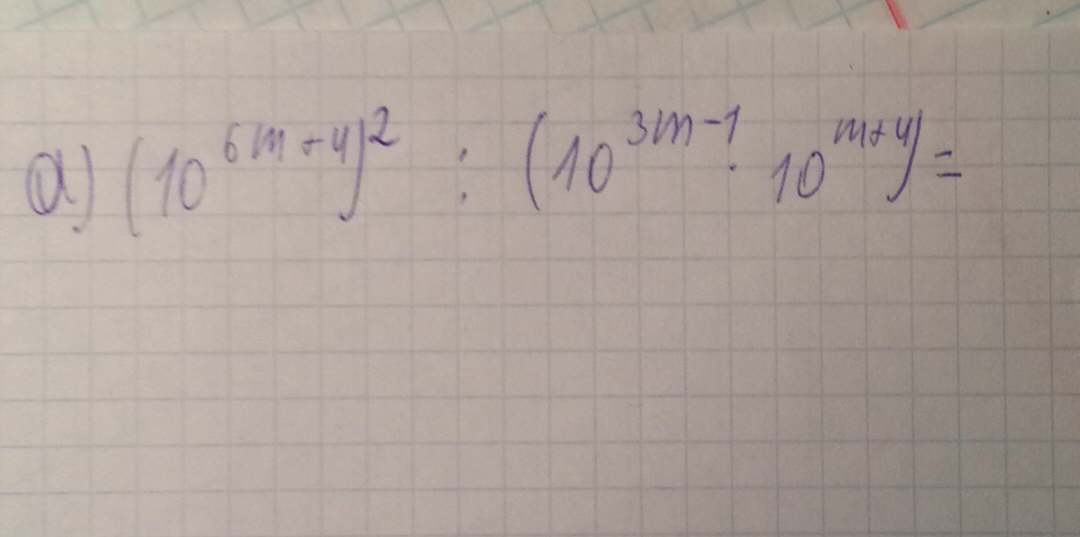 a) (10^{6m+4})^2 : (10^{3m-1} · 10^{m+4}) =